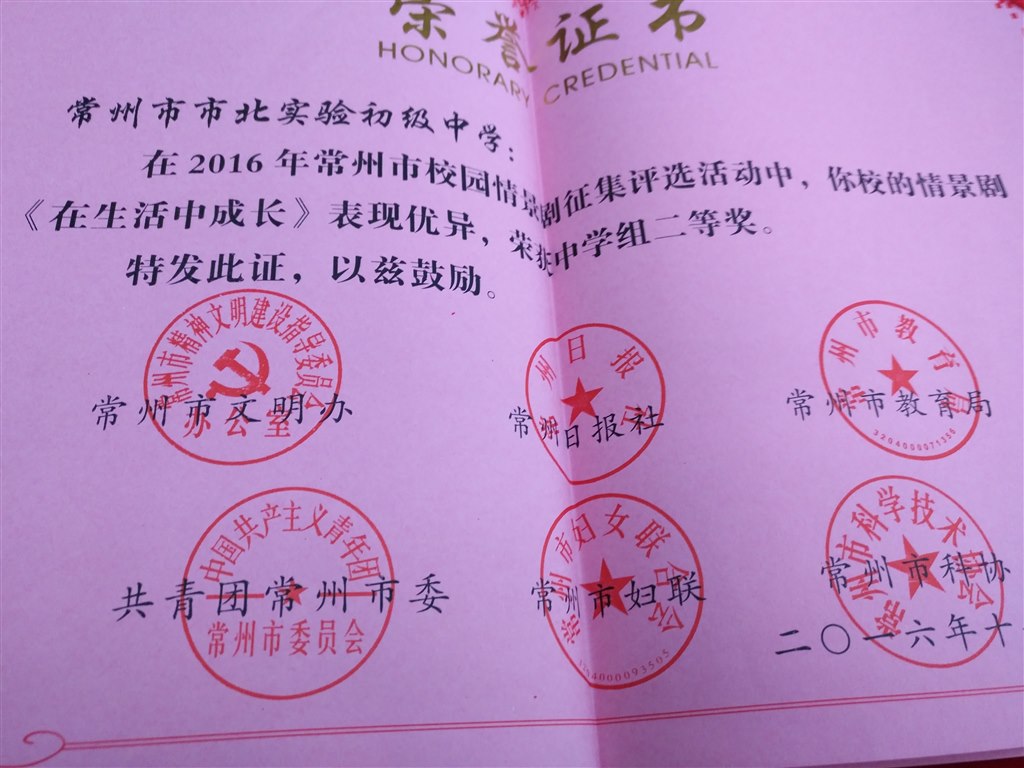 荣誉证书
HONORARY CREDENTIAL
常州市市北实验初级中学：
在 2016 年常州市校园情景剧征集评选活动中，你校的情景剧
《在生活中成长》表现优异，荣获中学组二等奖。
特发此证，以兹鼓励。
常州市精神文明建设指导委员会
办公室
常州市文明办
州日报
常州日报社
州市教育
3204000071355
常州市教育局
中国共产主义青年团
常州市委员会
共青团常州市委
常州市妇女联合会
3204000093505
常州市妇联
常州市科学技术协会
常州市科协
二〇一六年十